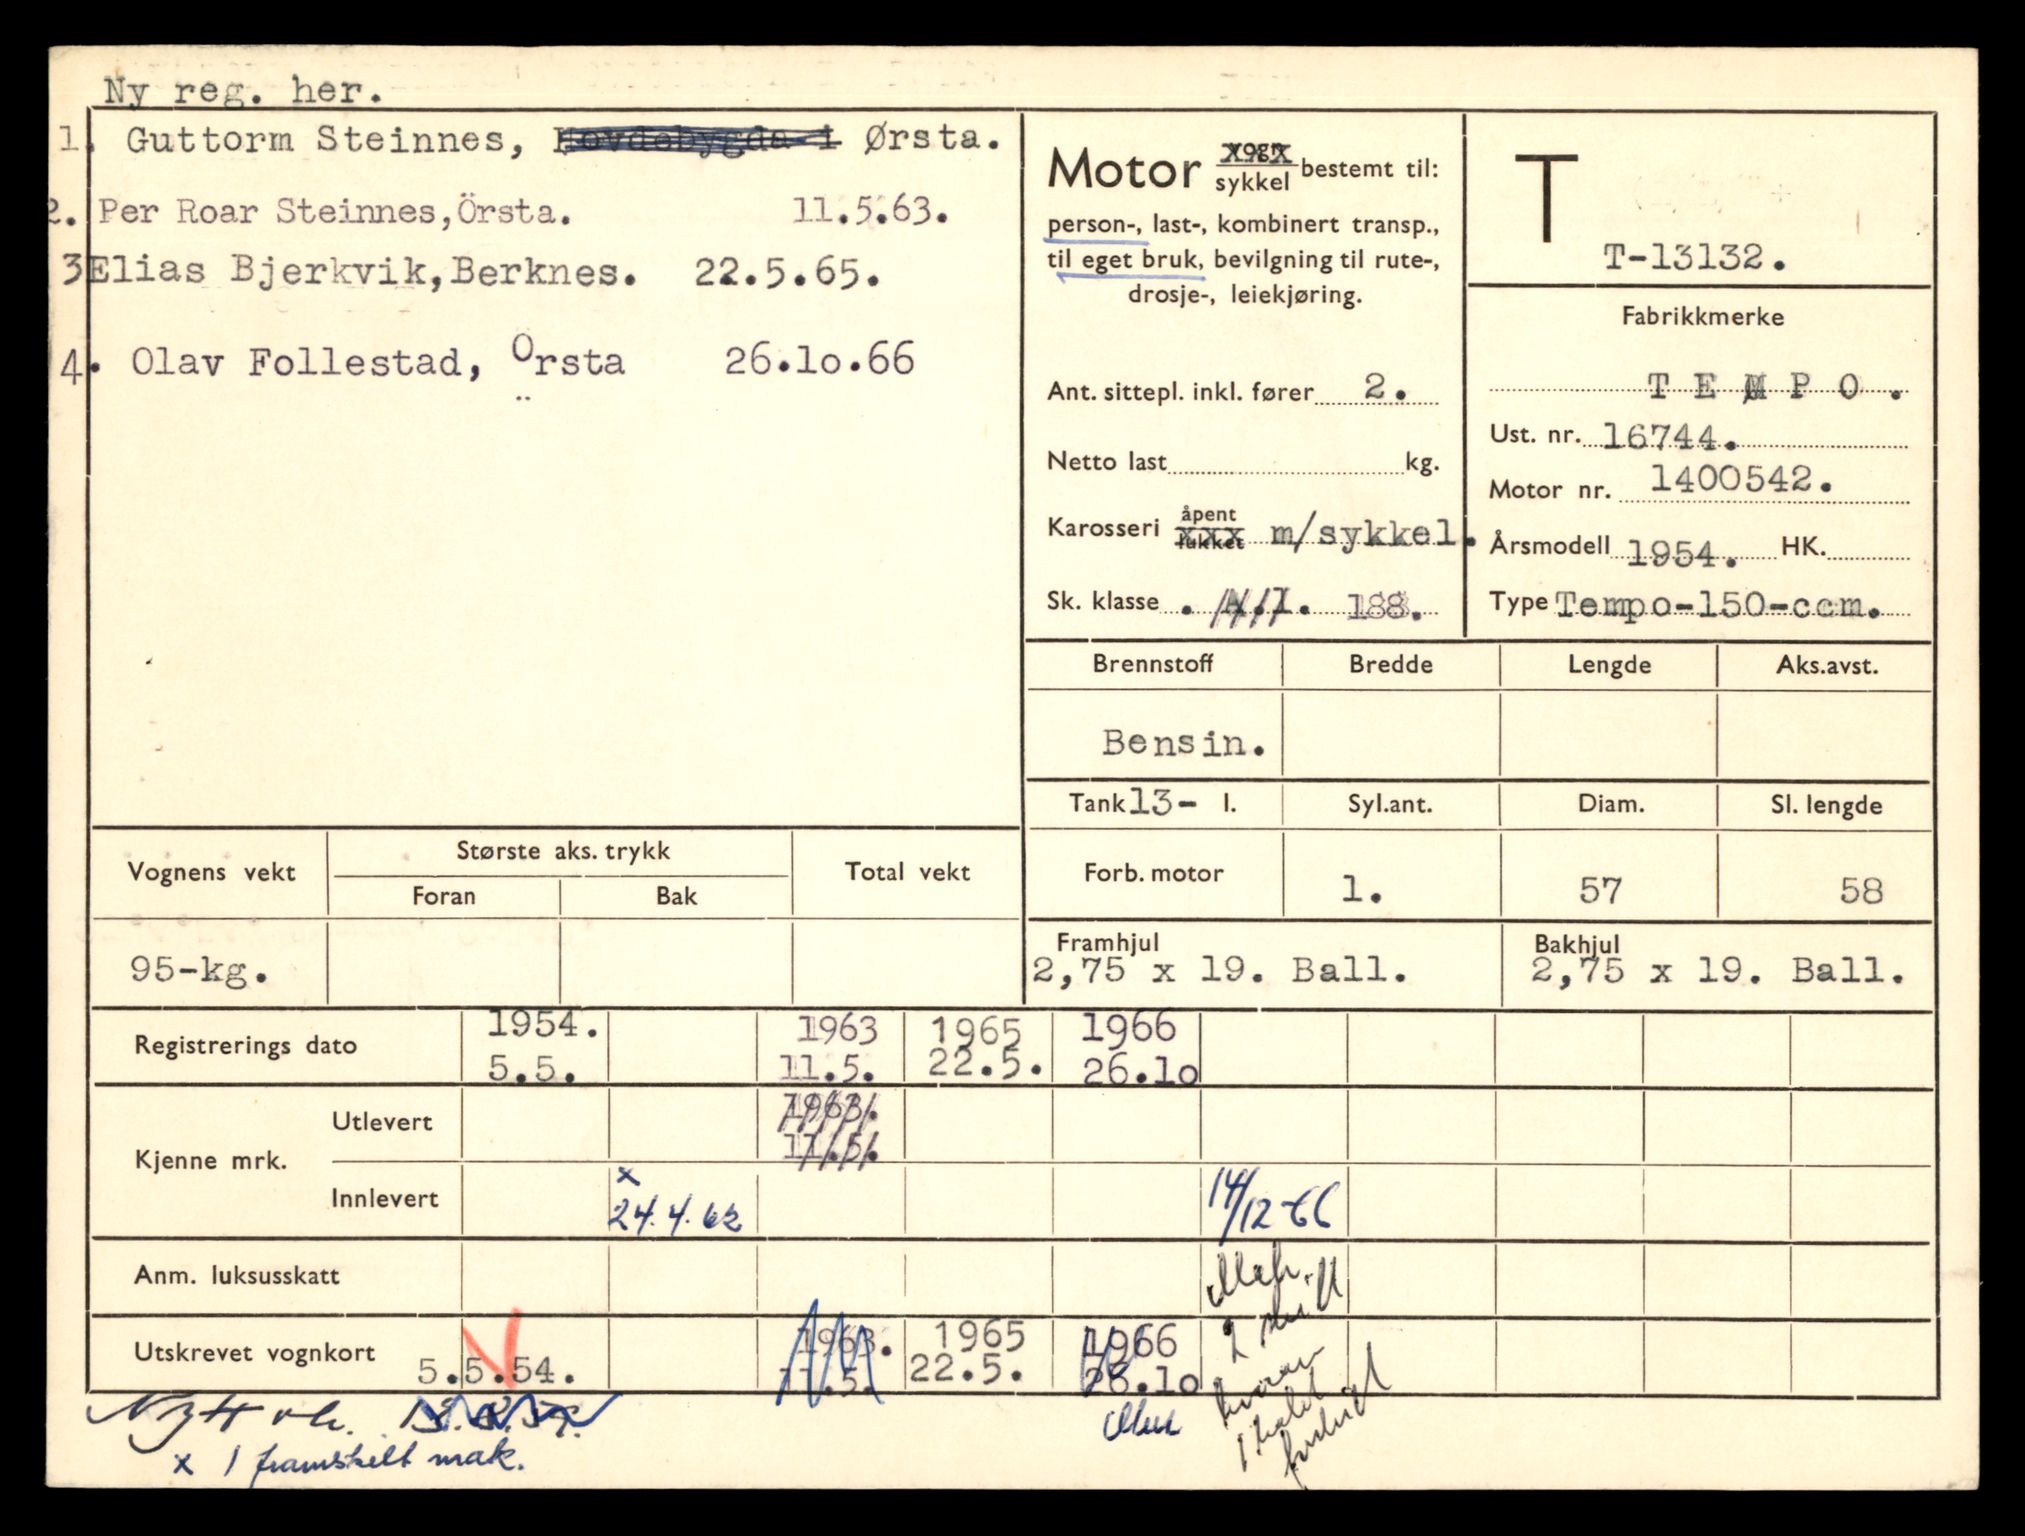 Ny reg. her.
1. Guttorm Steinnes, Hovdebygda i Ørsta.
2. Per Roar Steinnes, Örsta. 11.5.63.
3 Elias Bjerkvik, Berknes. 22.5.65.
4. Olav Follestad, Örsta 26.10.66
Motor vogn sykkel bestemt til:
person-, last-, kombinert transp.,
til eget bruk, bevilgning til rute-,
drosje-, leiekjøring.
Ant. sittepl. inkl. fører 2.
Netto last kg.
Karosseri åpent lukket m/sykkel.
Sk. klasse . A.1. 188.
T
T-13132.
Fabrikkmerke
T E M P O .
Ust. nr. 16744.
Motor nr. 1400542.
Årsmodell 1954. HK.
Type Tempo-150-ccm.
Brennstoff Bredde Lengde Aks.avst.
Bensin.
Tank 13- l. Syl.ant. Diam. Sl. lengde
Forb. motor 1. 57 58
Framhjul Bakhjul
2,75 x 19. Ball. 2,75 x 19. Ball.
Vognens vekt Største aks. trykk Total vekt
Foran Bak
95-kg.
Registrerings dato 1954. 1963 1965 1966
5.5. 11.5. 22.5. 26.10
Kjenne mrk. Utlevert 1963. 11.5.
Innlevert x 24.4.62 14/12-66
Anm. luksusskatt
Utskrevet vognkort 5.5.54. 1963. 1965 1966
11.5. 22.5. 26.10
Nytt vk.
x 1 framskilt mak.